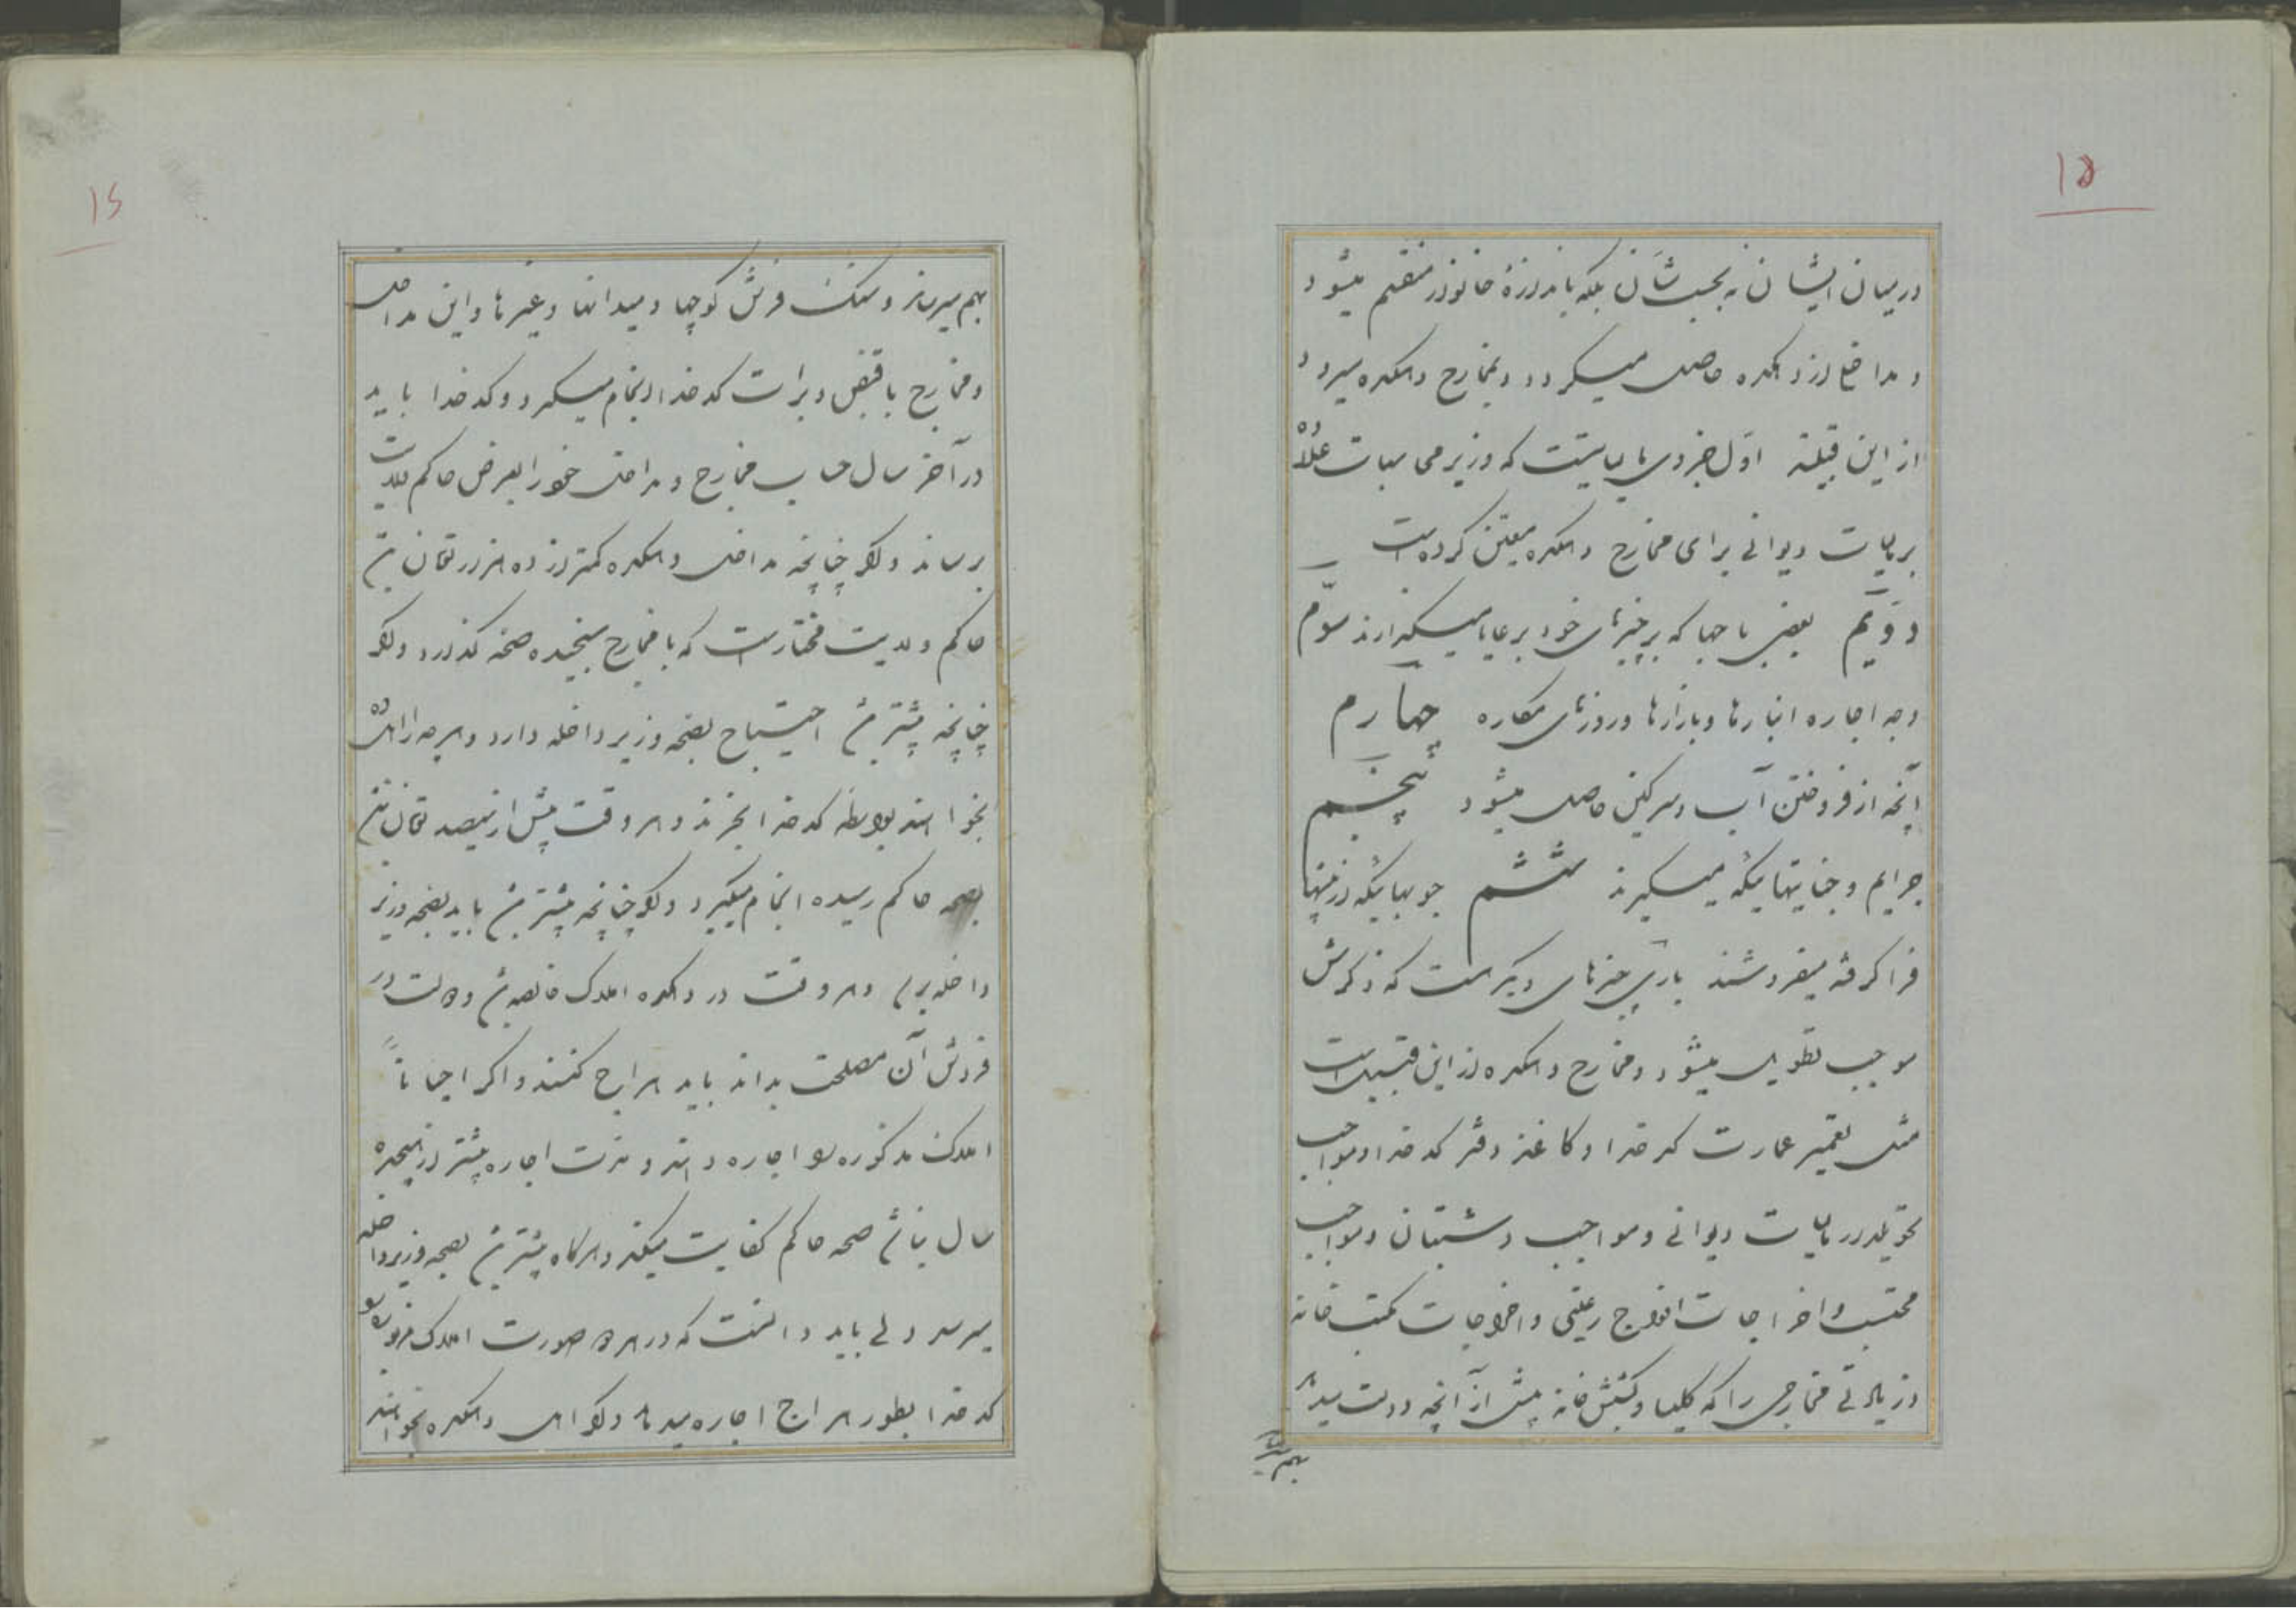 ۱۵
در میان ایشان نه بحسب شأن بلکه باندازهٔ خانوار منقسم میشود
و مداخل از دهکده حاصل میگردد و بمخارج دهکده میرود
از این قبیلند اوّل جزوی مالیاتیست که وزیر محاسبات علاوه
بر مالیات دیوانی برای مخارج دهکده معیّن کرده است
دوّیم بعضی باجها که بر چیزهای خود بر عایا میگذارند سوّم
وجه اجاره انبارها و بازارها و روزهای مکاره چهارم
آنچه از فروختن آب و سرکین حاصل میشود پنجم
جرایم و جنایتهائیکه میگیرند ششم چوبهائیکه از زمینها
فرا گرفته میفروشند باری چیزهای دیگر هست که ذکرش
موجب تطویل میشود و مخارج دهکده از این قبیل است
مثل تعمیر عمارت کدخدا و کاغذ دفتر کدخدا و مواجب
تحویلدار مالیات دیوانی و مواجب دشتبان و مواجب
محتسب و اخراجات افواج رعیتی و اخراجات مکتب خانه
و زیادتی مخارجی را که کلیسا و کشیش خانه بیش از آنچه دولت میدهد
بهم میرساند
۱۶
بهم میرساند و سنک فرش کوچها و میدانها و غیرها و این مداخل
و مخارج با قبض و برات کدخدا انجام میگیرد و کدخدا باید
در آخر سال حساب مخارج و مداخل خود را بعرض حاکم ولایت
برساند و اگر چنانچه مداخل دهکده کمتر از ده هزار تومان است
حاکم ولایت مختار است که با مخارج سنجیده صحه گذارد و اگر
چنانچه بیشتر باشد احتیاج بصحه وزیر داخله دارد و هرچه را اهل ده
بخواهند بواسطه کدخدا بخرند و هر وقت بیش از سیصد تومان نباشد
بصحه حاکم رسیده انجام میگیرد و اگر چنانچه بیشتر باشد باید بصحه وزیر
داخله برسد و هر وقت در دهکده املاک خالصه باشد و دولت در
فروش آن مصلحت بداند باید هراج کنند و اگر احیاناً
املاک مذکوره را اجاره دهند و مدّت اجاره بیشتر از هیجده
سال نباشد صحه حاکم کفایت میکند و هرگاه بیشتر باشد بصحه وزیر داخله
میرسد ولی باید دانست که در هر دو صورت املاک مزبوره را
کدخدا بطور هراج اجاره میدهد و اگر اهل دهکده بخواهند